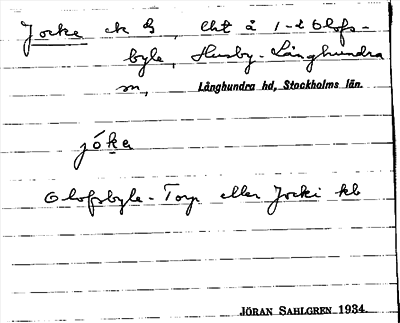 Jocke ek S, Lht å 1-2 Olofs-
byle, Husby-Långhundra
sn,
Långhundra hd, Stockholms län.
jóka
Olofsbyle-Torp eller Jocki kb
JÖRAN SAHLGREN 1934.